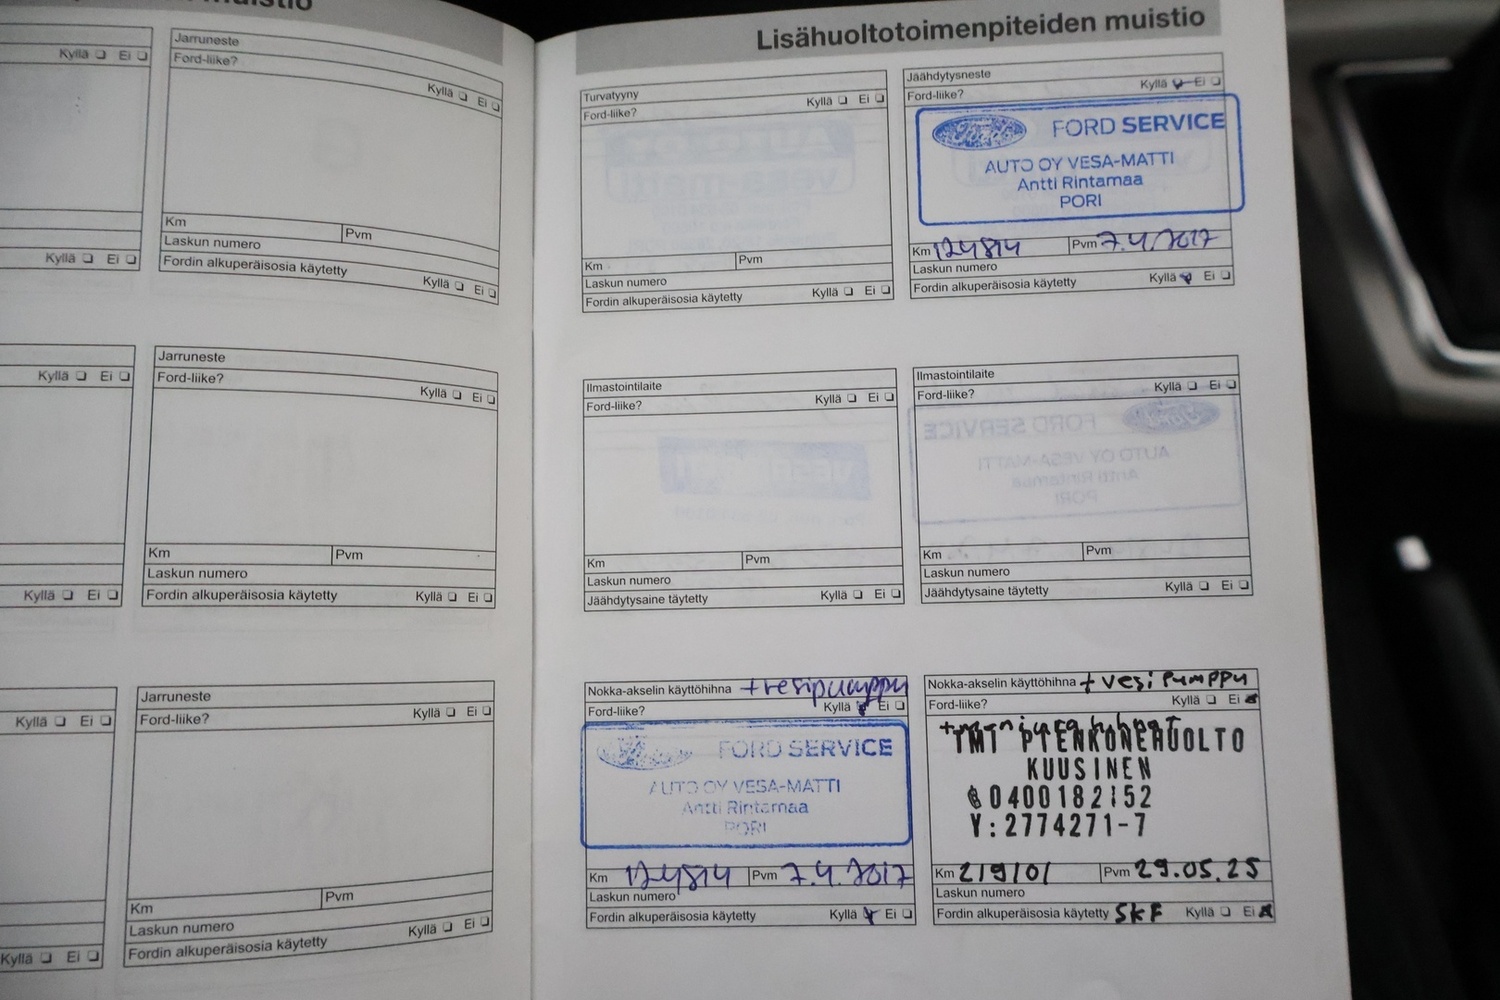 muistio
Kyllä Ei
Jarruneste
Ford-liike?
Kyllä Ei
Km Pvm
Laskun numero
Fordin alkuperäisosia käytetty
Kyllä Ei
Kyllä Ei
Kyllä Ei
Jarruneste
Ford-liike?
Kyllä Ei
Km Pvm
Laskun numero
Fordin alkuperäisosia käytetty Kyllä Ei
Kyllä Ei
Kyllä Ei
Jarruneste
Ford-liike? Kyllä Ei
Km Pvm
Laskun numero
Fordin alkuperäisosia käytetty Kyllä Ei
Kyllä Ei
Lisähuoltotoimenpiteiden muistio
Turvatyyny
Ford-liike? Kyllä Ei
Km Pvm
Laskun numero
Fordin alkuperäisosia käytetty Kyllä Ei
Jäähdytysneste
Ford-liike? Kyllä Ei
Ford FORD SERVICE
AUTO OY VESA-MATTI
Antti Rintamaa
PORI
Km 124814 Pvm 7.4.2017
Laskun numero
Fordin alkuperäisosia käytetty Kyllä Ei
Ilmastointilaite
Ford-liike? Kyllä Ei
Km Pvm
Laskun numero
Jäähdytysaine täytetty Kyllä Ei
Ilmastointilaite
Ford-liike? Kyllä Ei
Km Pvm
Laskun numero
Jäähdytysaine täytetty Kyllä Ei
Nokka-akselin käyttöhihna +vesipumppu
Ford-liike? Kyllä Ei
FORD SERVICE
AUTO OY VESA-MATTI
Antti Rintamaa
PORI
Km 124814 Pvm 7.4.2017
Laskun numero
Fordin alkuperäisosia käytetty Kyllä Ei
Nokka-akselin käyttöhihna + vesipumppu
Ford-liike? Kyllä Ei
TMI PIENKONEHUOLTO
KUUSINEN
0400182152
Y:2774271-7
Km 219101 Pvm 29.05.25
Laskun numero
Fordin alkuperäisosia käytetty SKF Kyllä Ei